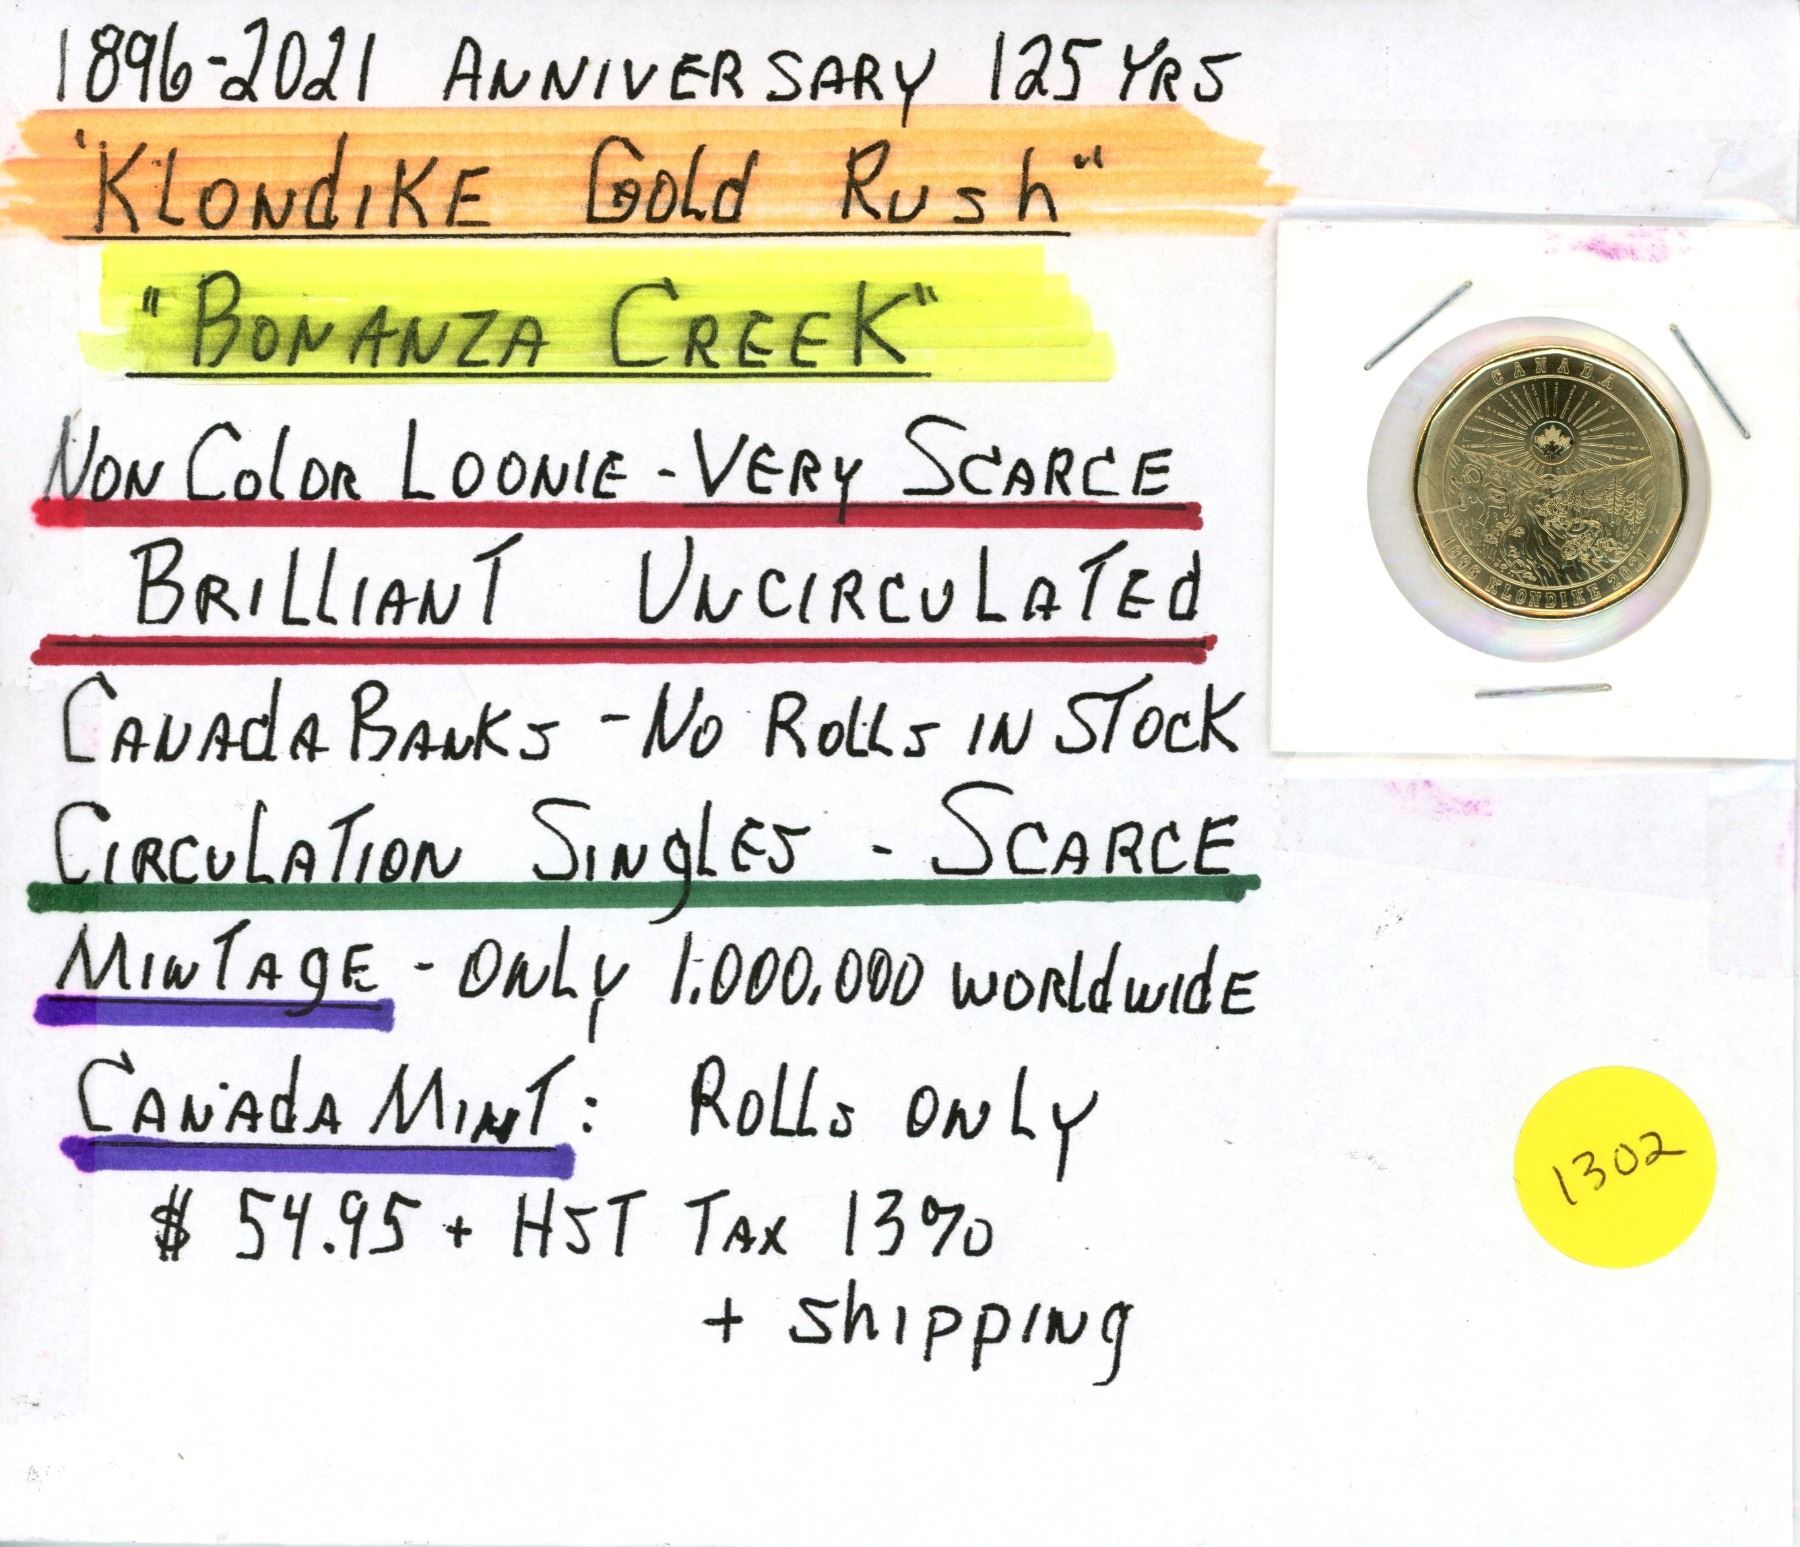 1896-2021 ANNIVERSARY 125 YRS
"KLONDIKE GOLD RUSH"
"BONANZA CREEK"
NON COLOR LOONIE - VERY SCARCE
BRILLIANT UNCIRCULATED
CANADA BANKS - NO ROLLS IN STOCK
CIRCULATION SINGLES - SCARCE
MINTAGE - ONLY 1,000,000 WORLDWIDE
CANADA MINT: ROLLS ONLY
$ 54.95 + HST TAX 13%
+ SHIPPING
CANADA
1896 KLONDIKE 2021
1302